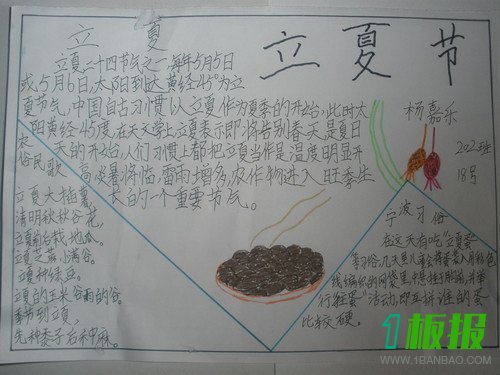 立夏
立夏节
立夏,二十四节气之一每年5月5日
或5月6日,太阳到达黄经45°为立
夏节气,中国自古习惯以立夏作为夏季的开始,此时太
阳黄经45度,在天文学上立夏表示即将告别春天是夏日
天的开始,人们习惯上都把立夏当作是温度明显升
高炎暑将临,雷雨增多,农作物进入旺季生
长的一个重要节气。
杨嘉乐
202班
18号
农俗民歌
立夏大插薯,
清明秋秋谷花,
立夏前后栽地瓜。
立夏芝麻小满谷。
立夏种绿豆。
立夏的玉米谷雨的谷。
季节到立夏,
先种黍子后种麻。
宁波习俗
在这天有吃"立夏蛋"
行"蛋"活动,即互拼谁的蛋
比较硬。
1板报
WWW.1BANBAO.COM